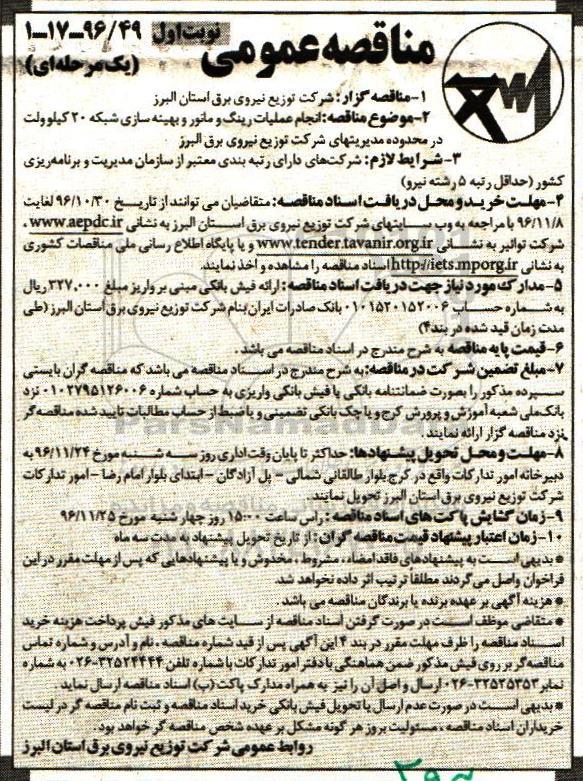 مناقصه عمومی نوبت اول ۱-۱۷-۹۶/۴۹
(یک مرحله‌ای)
۱-مناقصه گزار: شرکت توزیع نیروی برق استان البرز
۲-موضوع مناقصه: انجام عملیات رینگ و مانور و بهینه سازی شبکه ۲۰ کیلوولت
در محدوده مدیریتهای شرکت توزیع نیروی برق البرز
۳-شرایط لازم: شرکت‌های دارای رتبه بندی معتبر از سازمان مدیریت و برنامه‌ریزی
کشور (حداقل رتبه ۵ رشته نیرو)
۴-مهلت خرید و محل دریافت اسناد مناقصه: متقاضیان می توانند از تاریخ ۹۶/۱۰/۳۰ لغایت
۹۶/۱۱/۸ با مراجعه به وب سایتهای شرکت توزیع نیروی برق استان البرز به نشانی www.aepdc.ir ،
شرکت توانیر به نشانی www.tender.tavanir.org.ir و یا پایگاه اطلاع رسانی ملی مناقصات کشوری
به نشانی http://iets.mporg.ir اسناد مناقصه را مشاهده و اخذ نمایند.
۵-مدارک مورد نیاز جهت دریافت اسناد مناقصه: ارائه فیش بانکی مبنی بر واریز مبلغ ۳۲۷,۰۰۰ ریال
به شماره حساب ۰۱۰۱۵۲۰۱۵۲۰۰۶ بانک صادرات ایران بنام شرکت توزیع نیروی برق استان البرز (طی
مدت زمان قید شده در بند۴)
۶-قیمت پایه مناقصه به شرح مندرج در اسناد مناقصه می باشد.
۷-مبلغ تضمین شرکت در مناقصه: به شرح مندرج در اسناد مناقصه می باشد که مناقصه گران بایستی
سپرده مذکور را بصورت ضمانتنامه بانکی یا فیش بانکی واریزی به حساب شماره ۰۱۰۲۷۹۵۱۲۶۰۰۶ نزد
بانک ملی شعبه آموزش و پرورش کرج و یا چک بانکی تضمینی و یا ضبط از حساب مطالبات تایید شده مناقصه‌گر
نزد مناقصه گزار ارائه نمایند.
۸-مهلت و محل تحویل پیشنهادها: حداکثر تا پایان وقت اداری روز سه شنبه مورخ ۹۶/۱۱/۲۴ به
دبیرخانه امور تدارکات واقع در کرج بلوار طالقانی شمالی – پل آزادگان – ابتدای بلوار امام رضا – امور تدارکات
شرکت توزیع نیروی برق استان البرز تحویل نمایند.
۹-زمان گشایش پاکت های اسناد مناقصه: راس ساعت ۱۵:۰۰ روز چهار شنبه مورخ ۹۶/۱۱/۲۵
۱۰-زمان اعتبار پیشنهاد قیمت مناقصه گران: از تاریخ تحویل پیشنهاد به مدت سه ماه
* بدیهی است به پیشنهادهای فاقد امضاء، مشروط، مخدوش و یا پیشنهادهایی که پس از مهلت مقرر در این
فراخوان واصل می‌گردند مطلقا ترتیب اثر داده نخواهد شد.
* هزینه آگهی بر عهده برنده یا برندگان مناقصه می باشد.
* متقاضی موظف است در صورت گرفتن اسناد مناقصه از سایت های مذکور فیش پرداخت هزینه خرید
اسناد مناقصه را ظرف مهلت مقرر در بند ۴ این آگهی پس از قید شماره مناقصه ، نام و آدرس و شماره تماس
مناقصه‌گر بر روی فیش مذکور ضمن هماهنگی با دفتر امور تدارکات با شماره تلفن ۳۲۵۲۴۴۴۴-۰۲۶ به شماره
نمابر ۳۲۵۲۵۳۵۳-۰۲۶ ارسال و اصل آن را نیز به همراه مدارک پاکت (ب) اسناد مناقصه ارسال نماید.
* بدیهی است در صورت عدم ارسال یا تحویل فیش بانکی خرید اسناد مناقصه و ثبت نام مناقصه گر در لیست
خریداران اسناد مناقصه ، مسئولیت بروز هر گونه مشکل بر عهده شخص مناقصه گر خواهد بود.
روابط عمومی شرکت توزیع نیروی برق استان البرز